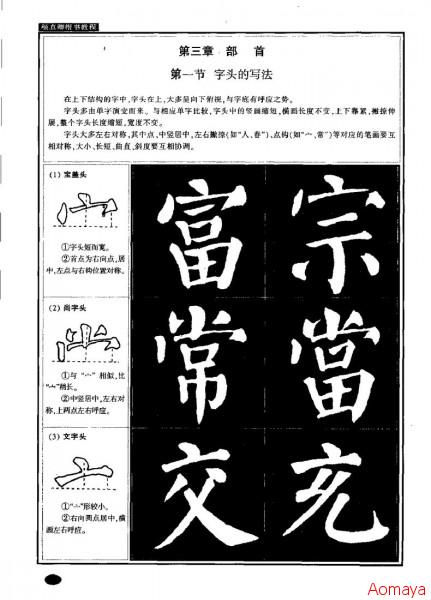 颜真卿楷书教程
第三章 部 首
第一节 字头的写法
在上下结构的字中,字头在上,大多呈向下俯视,与字底有呼应之势。
字头多由单字演变而来。与相应单字比较,字头中的竖画缩短,横画长度不变,上下靠紧,撇捺伸
展,整个字头长度缩短,宽度不变。
字头大多左右对称,其中点、中竖居中,左右撇捺(如“人、春”)、点钩(如“宀、常”)等对应的笔画要互
相对称,大小、长短、曲直、斜度要互相协调。
(1) 宝盖头
①字头短而宽。
②首点为右向点,居
中,左点与右钩位置对称。
富 宗
(2) 尚字头
①与“宀”相似,比
“宀”稍长。
②中竖居中,左右对
称,上两点左右呼应。
常 當
(3) 文字头
①“亠”形较小。
②右向两点居中,横
画左右呼应。
交 充
Aomaya